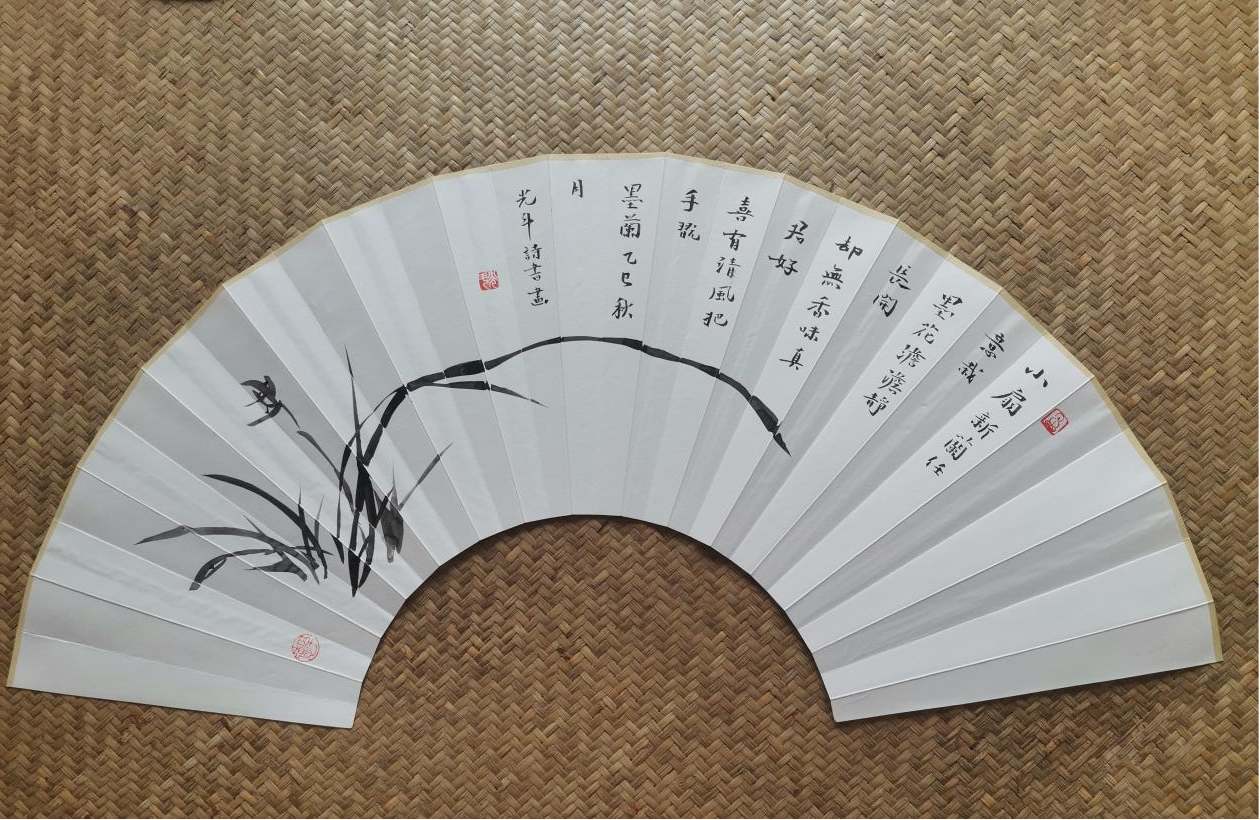 小扇新蘭任
意栽
墨花澹澹靜
長開
却無香味真
君好
喜有清風把
手
墨蘭乙巳秋
月
光斗詩書畫